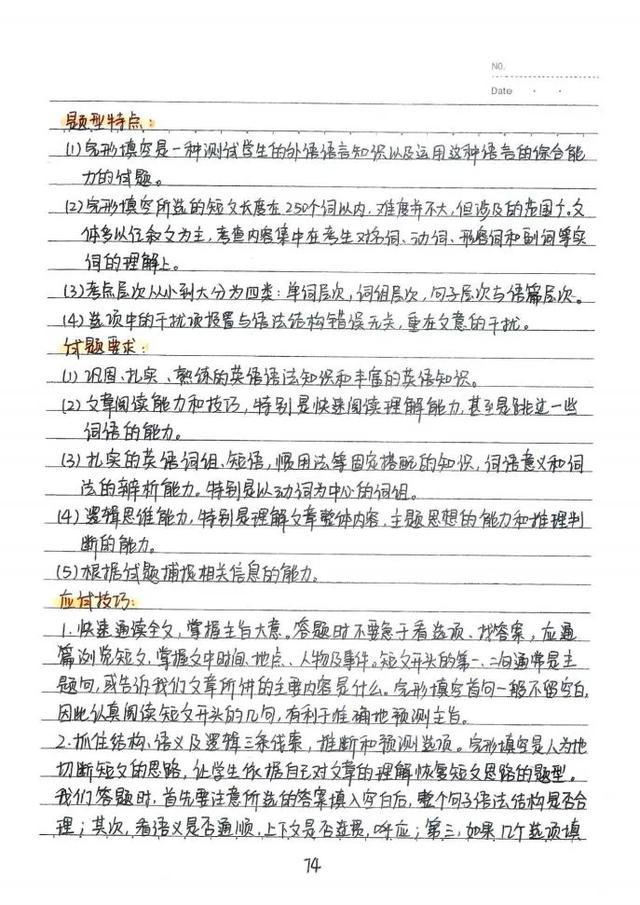 NO.
Date
题型特点:
(1)完形填空是一种测试学生的外语语言知识以及运用这种语言的综合能
力的试题。
(2)完形填空所选的短文长度在250个词以内,难度并不大,但涉及的范围广。文
体多以记叙文为主,考查内容集中在考生对名词、动词、形容词和副词等实
词的理解上。
(3)考点层次从小到大分为四类:单词层次,词组层次,句子层次与语篇层次。
(4)选项中的干扰项设置与语法结构错误无关,重在文意的干扰。
试题要求:
(1)巩固、扎实、熟练的英语语法知识和丰富的英语知识。
(2)文章阅读能力和技巧,特别是快速阅读理解能力,甚至是跳过一些
词语的能力。
(3)扎实的英语词组、短语,惯用法等固定搭配的知识,词语意义和词
法的辨析能力。特别是以动词为中心的词组。
(4)逻辑思维能力,特别是理解文章整体内容、主题思想的能力和推理判
断的能力。
(5)根据试题捕捉相关信息的能力。
应试技巧:
1.快速通读全文,掌握主旨大意。答题时不要急于看选项、找答案,应通
篇浏览短文,掌握文中时间、地点、人物及事件。短文开头的第一、二句通常是主
题句,或告诉我们文章所讲的主要内容是什么。完形填空首句一般不留空白,
因此认真阅读短文开头的几句,有利于准确地预测主旨。
2.抓住结构、语义及逻辑三条线索,推断和预测选项。完形填空是人为地
切断短文的思路,让学生依据自己对文章的理解恢复短文思路的题型。
我们答题时,首先要注意所选的答案填入空白后,整个句子语法结构是否合
理;其次,看语义是否通顺,上下文是否连贯,呼应;第三,如果几个选项填
74